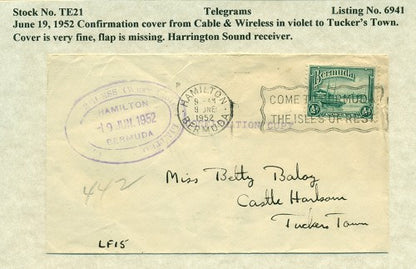 Stock No. TE21 Telegrams Listing No. 6941
June 19, 1952 Confirmation cover from Cable & Wireless in violet to Tucker's Town.
Cover is very fine, flap is missing. Harrington Sound receiver.
HAMILTON
19 JUN 1952
BERMUDA
HAMILTON
9 JNE
1952
BERMUDA
COME TO BERMUDA
THE ISLES OF REST
Bermuda
442
Miss Betty
Castle Harbour
Tuckers Town
LF15